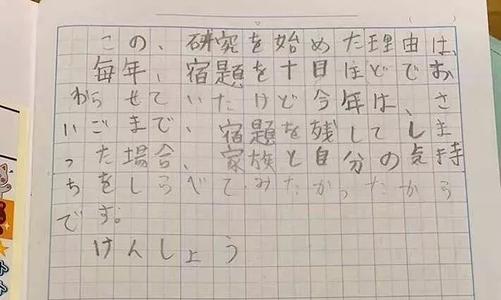 この、研究を始めた理由は、
毎年、宿題を十日ほどでお
わらせていたけど今年は、さ
いごまで、宿題を残してしま
った場合、家族と自分の気持
ちをしらべてみたかったから
です。
けんしょう